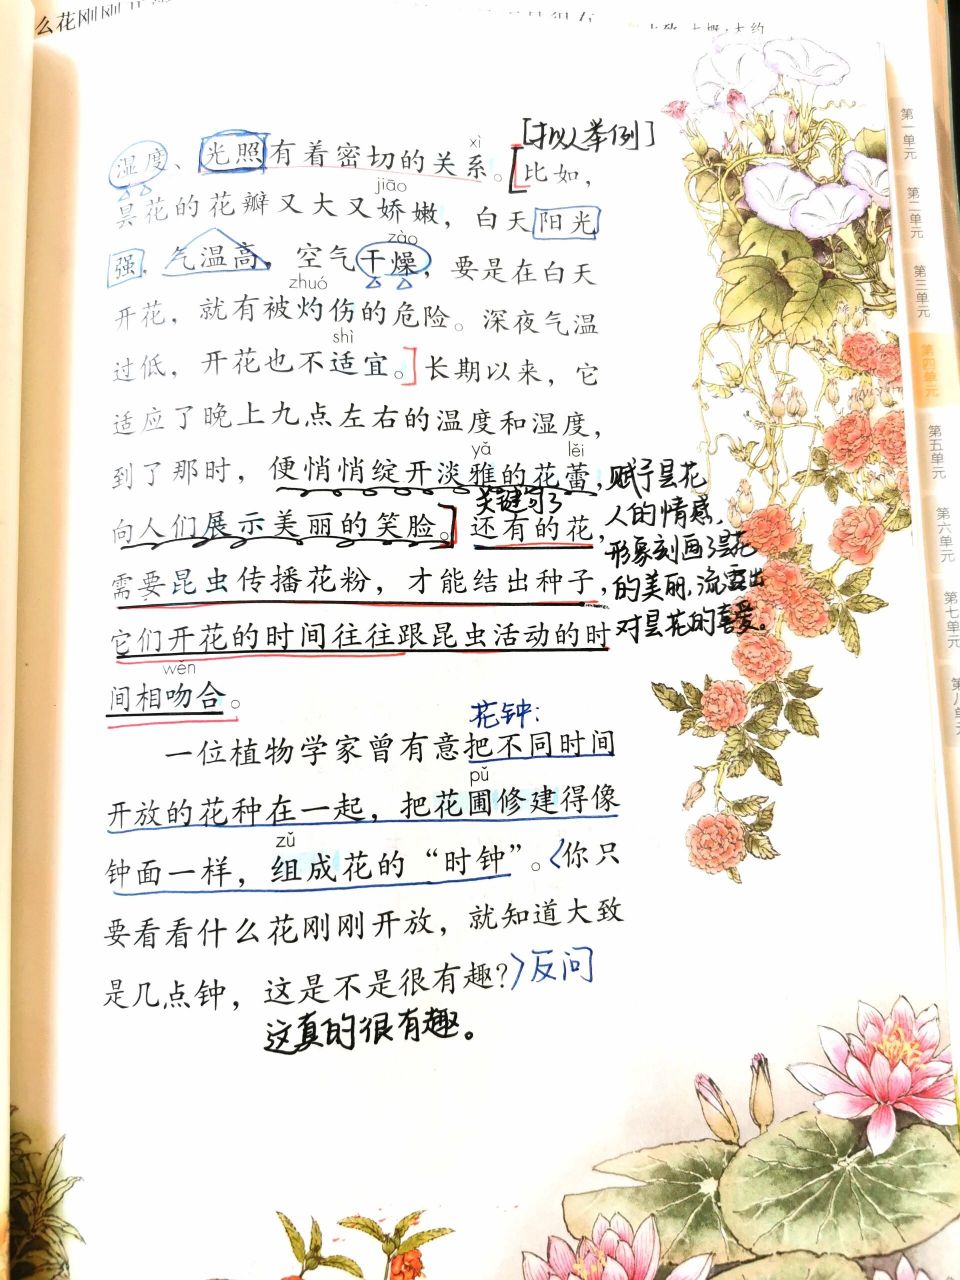 么花刚刚
大致:大概;大约
[拟人举例]
xì
湿度、光照有着密切的关系。[比如,
jiāo
昙花的花瓣又大又娇嫩,白天阳光
zào
强,气温高,空气干燥,要是在白天
zhuó
开花,就有被灼伤的危险。深夜气温
shì
过低,开花也不适宜。]长期以来,它
适应了晚上九点左右的温度和湿度,
yǎ lěi
到了那时,便悄悄绽开淡雅的花蕾,
关键句了
向人们展示美丽的笑脸。]还有的花,
需要昆虫传播花粉,才能结出种子,
它们开花的时间往往跟昆虫活动的时
wěn
间相吻合。
赋予昙花
人的情感,
形象刻画了昙花
的美丽,流露出
对昙花的喜爱。
花钟:
一位植物学家曾有意把不同时间
pǔ
开放的花种在一起,把花圃修建得像
zǔ
钟面一样,组成花的“时钟”。〈你只
要看看什么花刚刚开放,就知道大致
是几点钟,这是不是很有趣?〉反问
这真的很有趣。
第一单元
第二单元
第三单元
第四单元
第五单元
第六单元
第七单元
第八单元